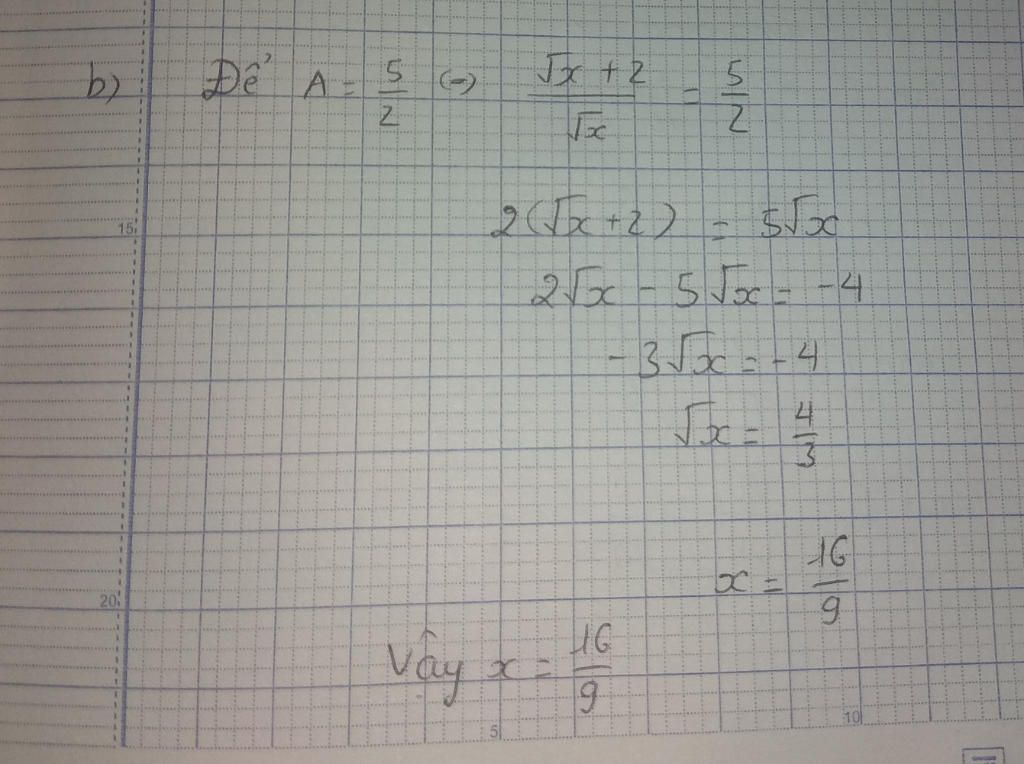 b) Để A = 5/2 (=) (√x + 2)/√x = 5/2
15
2(√x + 2) = 5√x
2√x - 5√x = -4
-3√x = -4
√x = 4/3
x = 16/9
20
Vậy x = 16/9
5
10